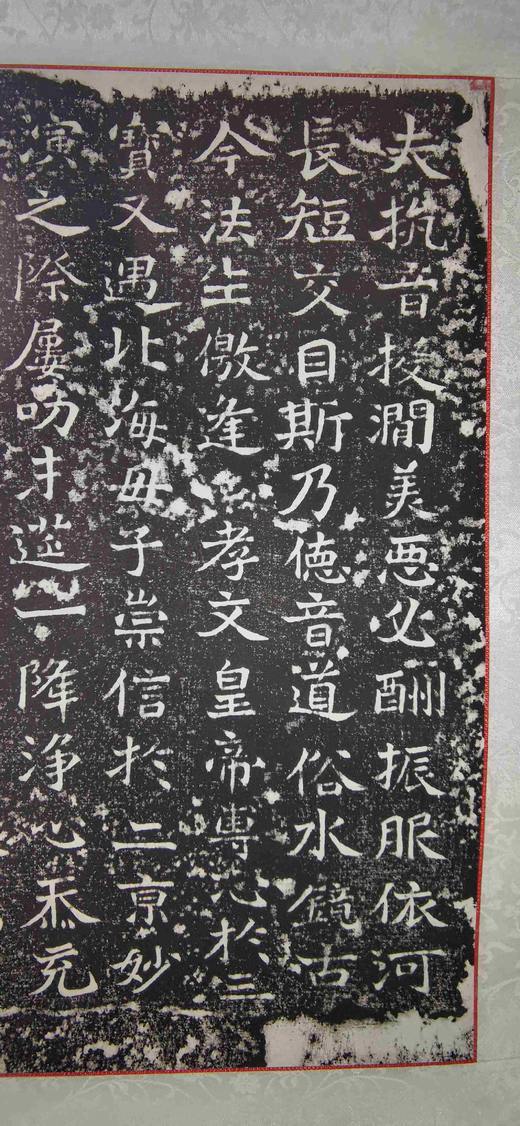 夫抗音投澗美惡必酬振服依河
長短交目斯乃德音道俗水鏡古
今法生儌逢孝文皇帝專心於三
寶又遇北海母子崇信於二京妙
演之際屢叨末筵一降淨心忝充